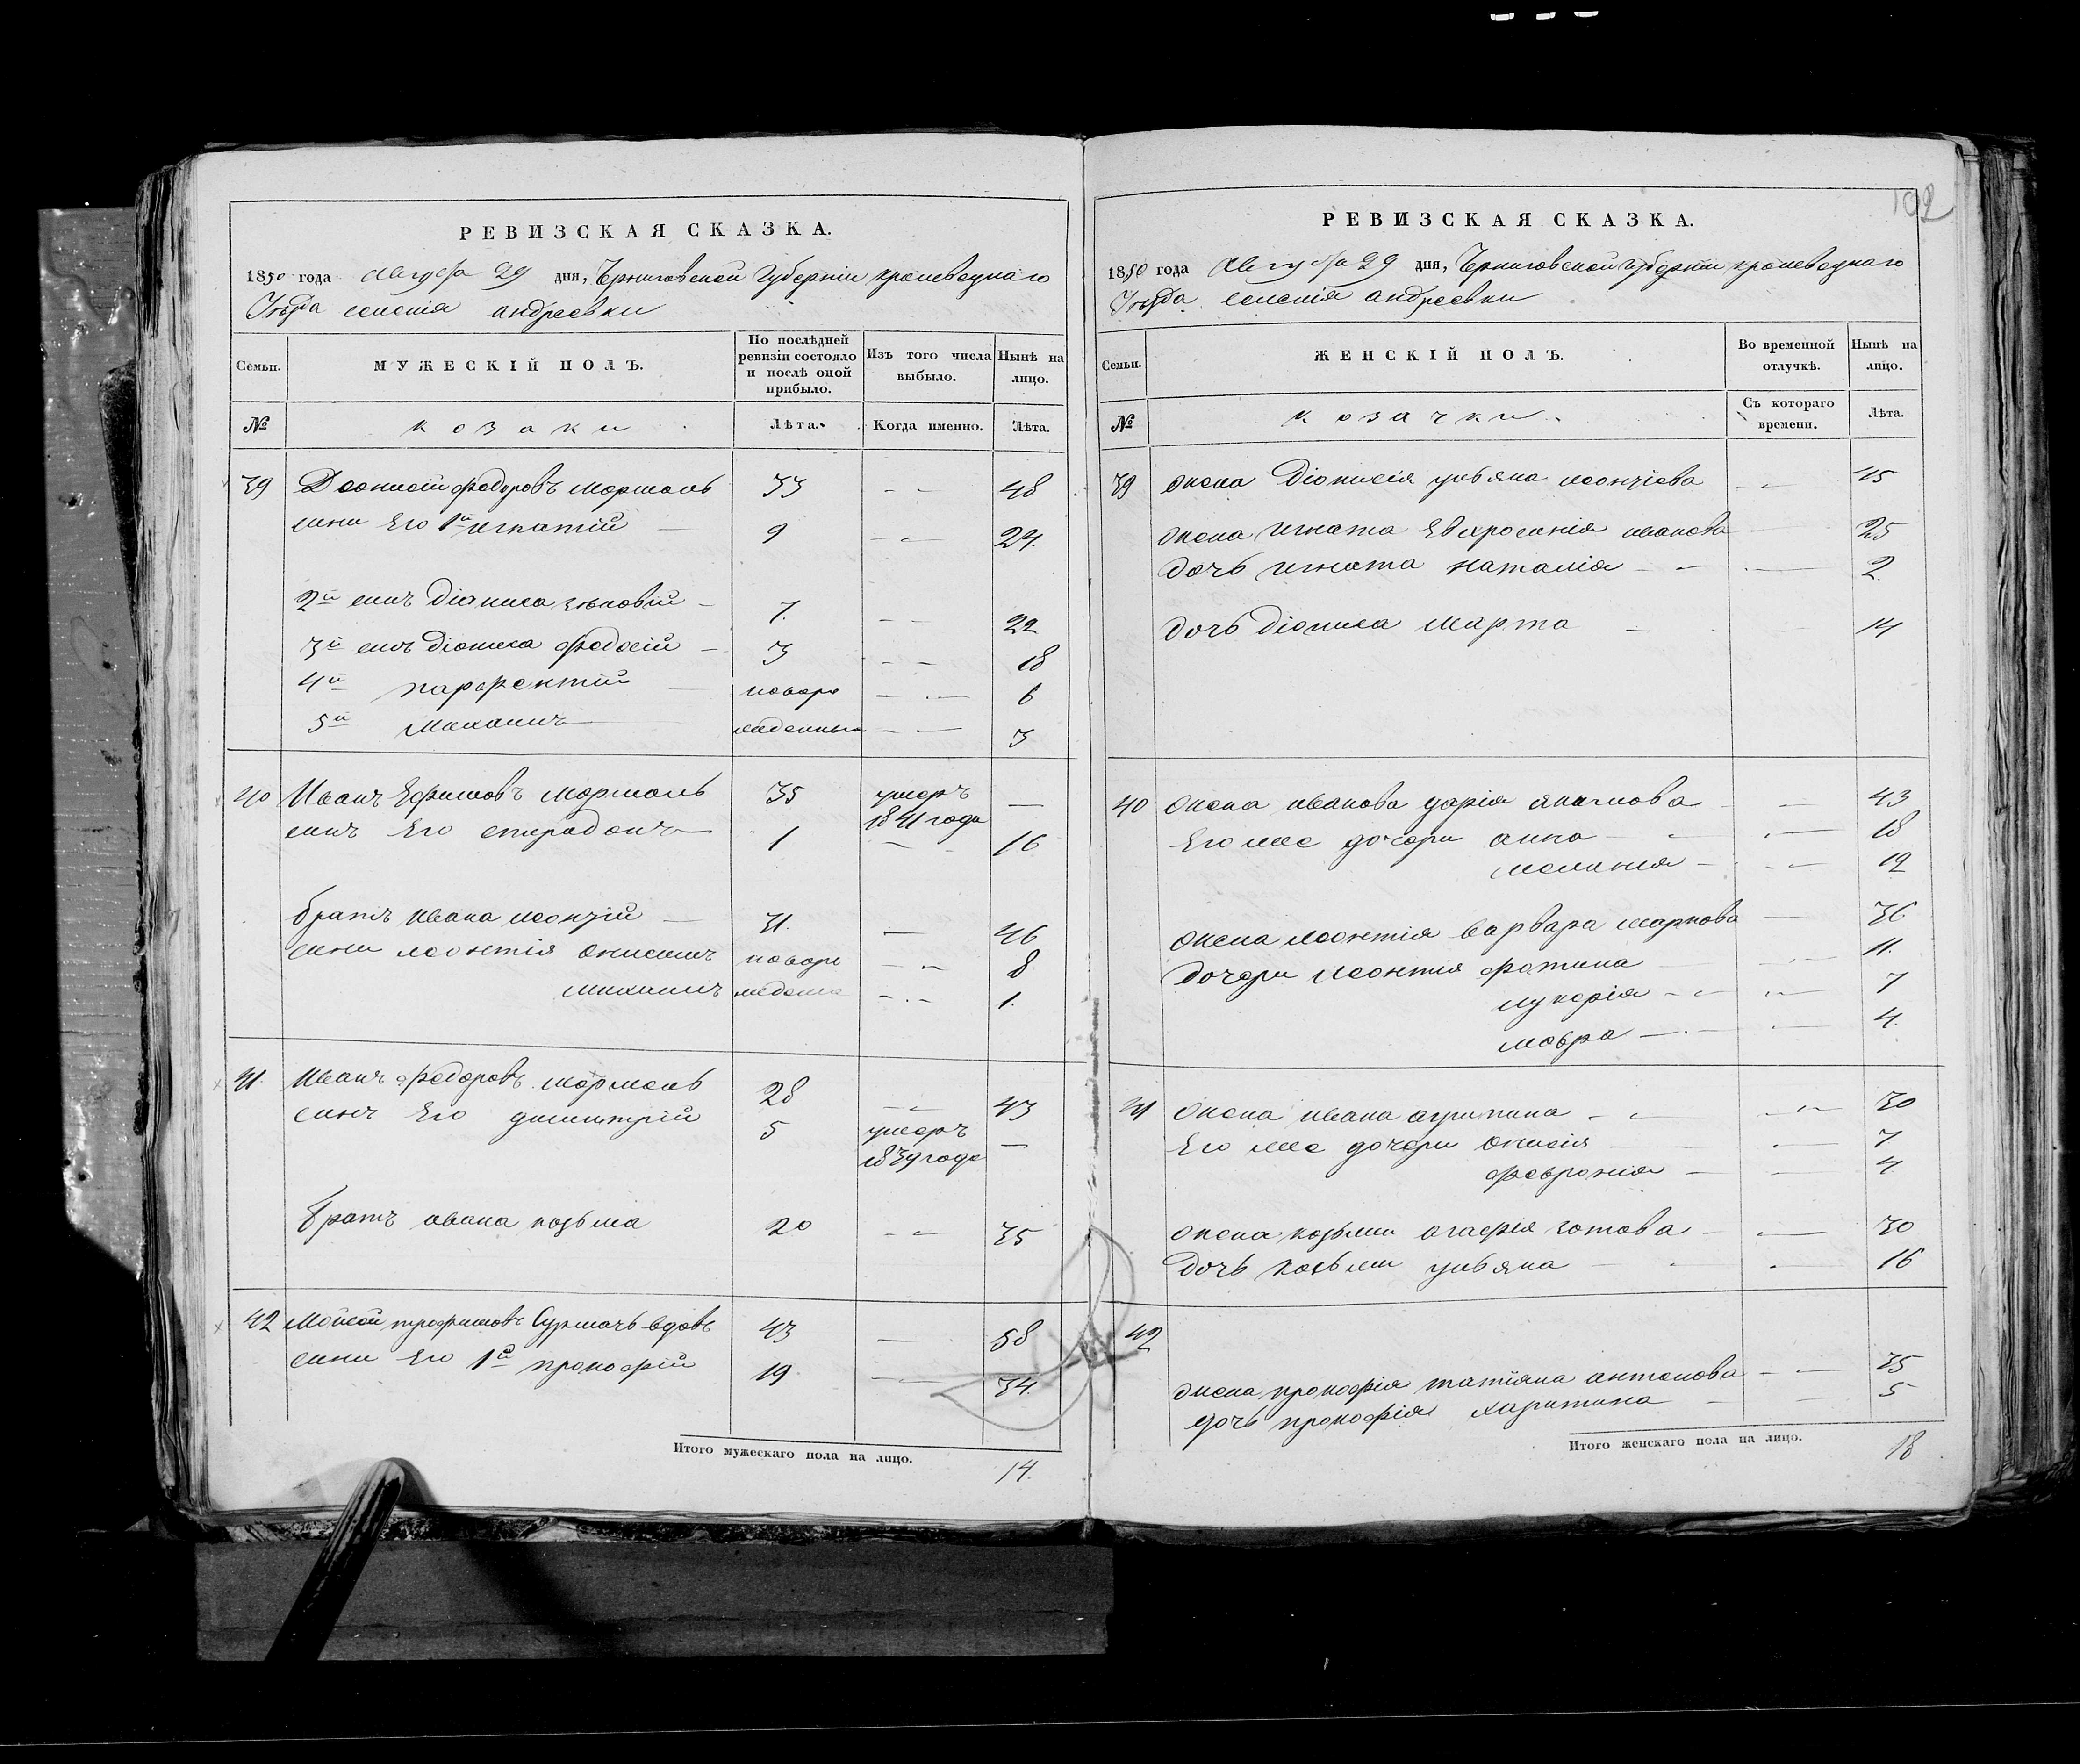 102
РЕВИЗСКАЯ СКАЗКА.
1850 года Августа 29 дня, Черниговской Губерніи кролевецкаго
Уезда селенія андреевки
Семьи. МУЖЕСКІЙ ПОЛЪ. По послѣдней ревизіи состояло и послѣ оной прибыло. Изъ того числа выбыло. Нынѣ на лицо.
№ козаки Лѣта. Когда именно. Лѣта.
39 Деонисій федоровъ моршоль 33 48
сини Его 1й игнатій 9 24.
2й синъ діониса зѣновій 7. 22
3й синъ діониса федосій 3 18
4й парфентій новоро 6
5й Михаилъ жденныи 3
40 Иванъ Ефимовъ моршоль 35 умеръ 1841 года
синъ Его спиридонъ 1 16
братъ ивана леонтій 31. 46
сини леонтія онисимъ новоро 8
михаилъ 1.
41. Иванъ федоровъ моршоль 28 43
синъ Его димитрій 5 умеръ 1839 года
братъ ивана козьма 20 35
42 Мойсей трофимовъ Сурмачъ вдовъ 43 58
сини Его 1й прокофій 19 34.
Итого мужескаго пола на лицо. 14.
РЕВИЗСКАЯ СКАЗКА.
1850 года Августа 29 дня, Черниговской губерніи кролевецкаго
Уезда селенія андреевки
Семьи. ЖЕНСКІЙ ПОЛЪ. Во временной отлучкѣ. Нынѣ на лицо.
№ козачки Съ котораго времени. Лѣта.
39 жена діонисія ульяна леонтіева 45
жена игната Евхросинія иванова 25
дочь игната наталія 2.
дочь діониса марта 14
40 жена иванова дарія якимова 43
Его же дочери анна 18
меланія 12
жена леонтія варвара маркова 36
дочери леонтія фотина 11.
лукерія 7
мавра 4.
41 жена ивана агрипина 30
Его же дочери анисія 7
февронія 4
жена козьми агафія титова 30
дочь козьми ульяна 16
42
жена прокофія татіяна антонова 35
дочь прокофія харитина 5
Итого женскаго пола на лицо. 18